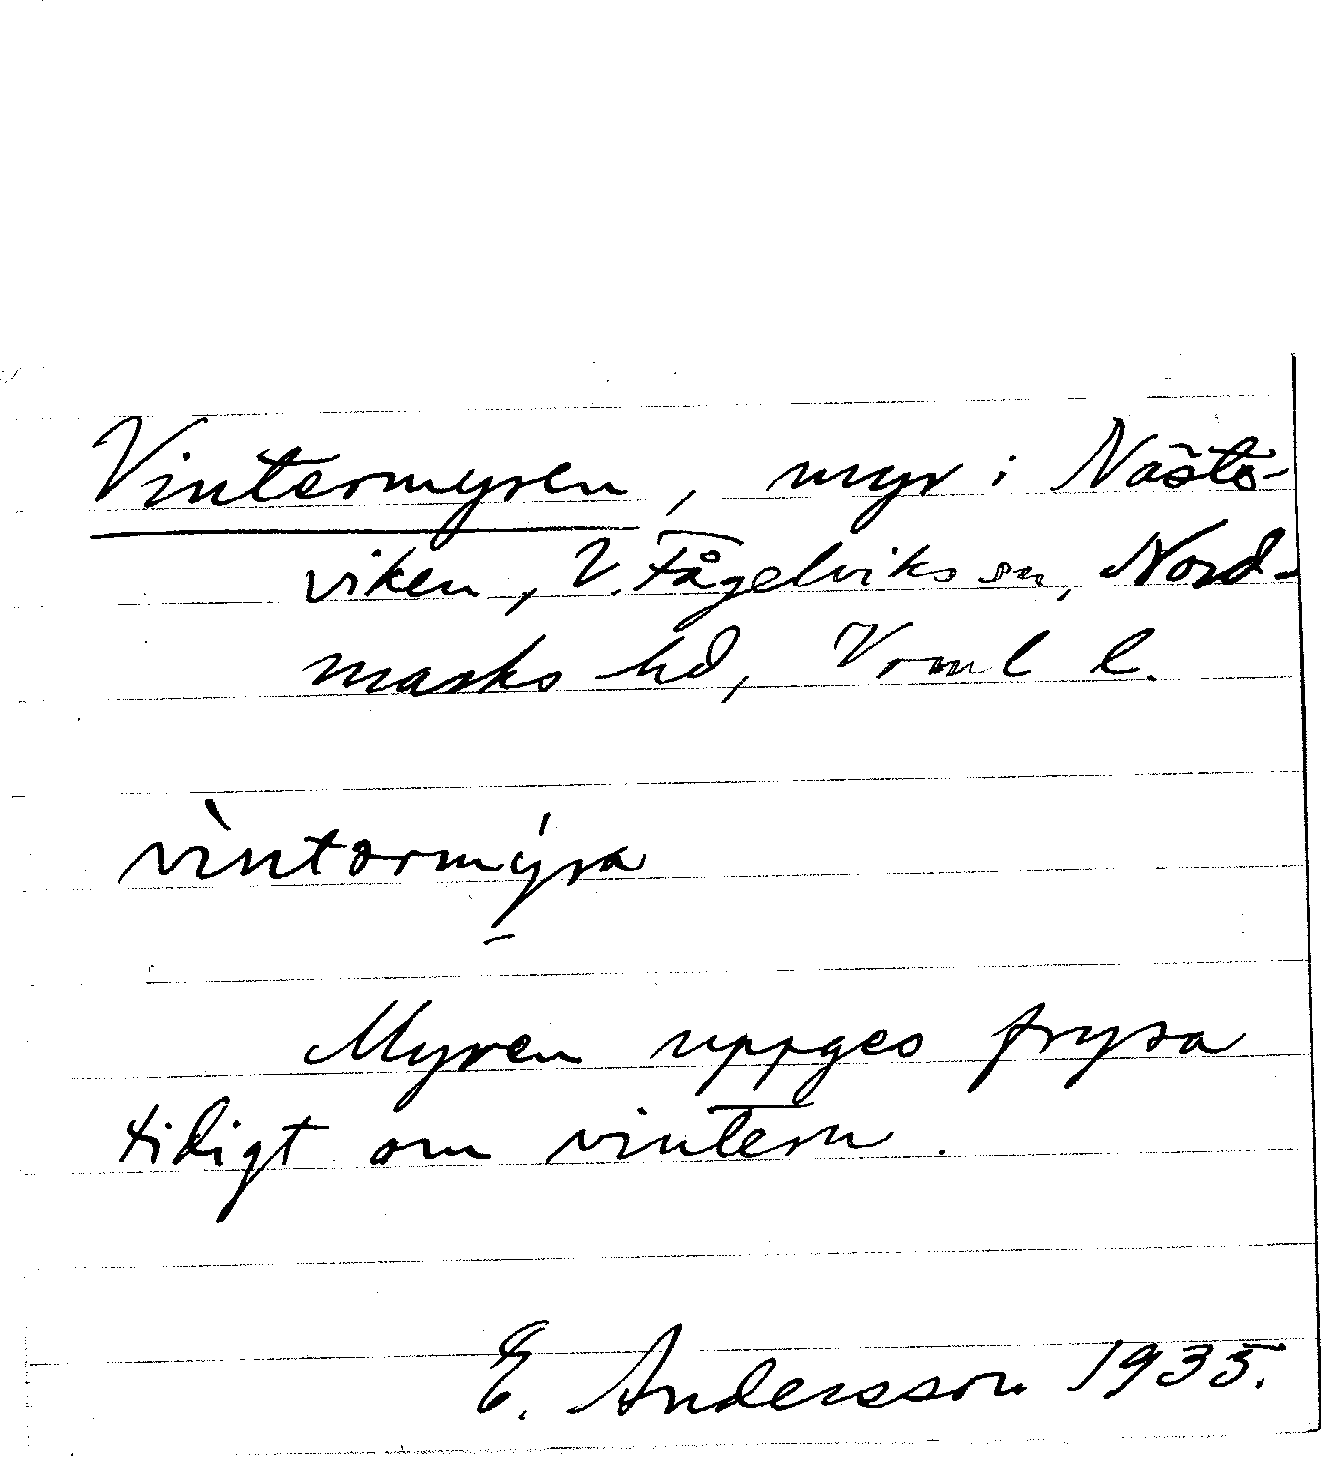 Vintermyren, myr i Näste-
viken, V. Fågelviks sn, Nord-
marks hd, Vrml l.
vìntərmýra
Myren uppges frysa
tidigt om vintern.
E. Andersson 1935.